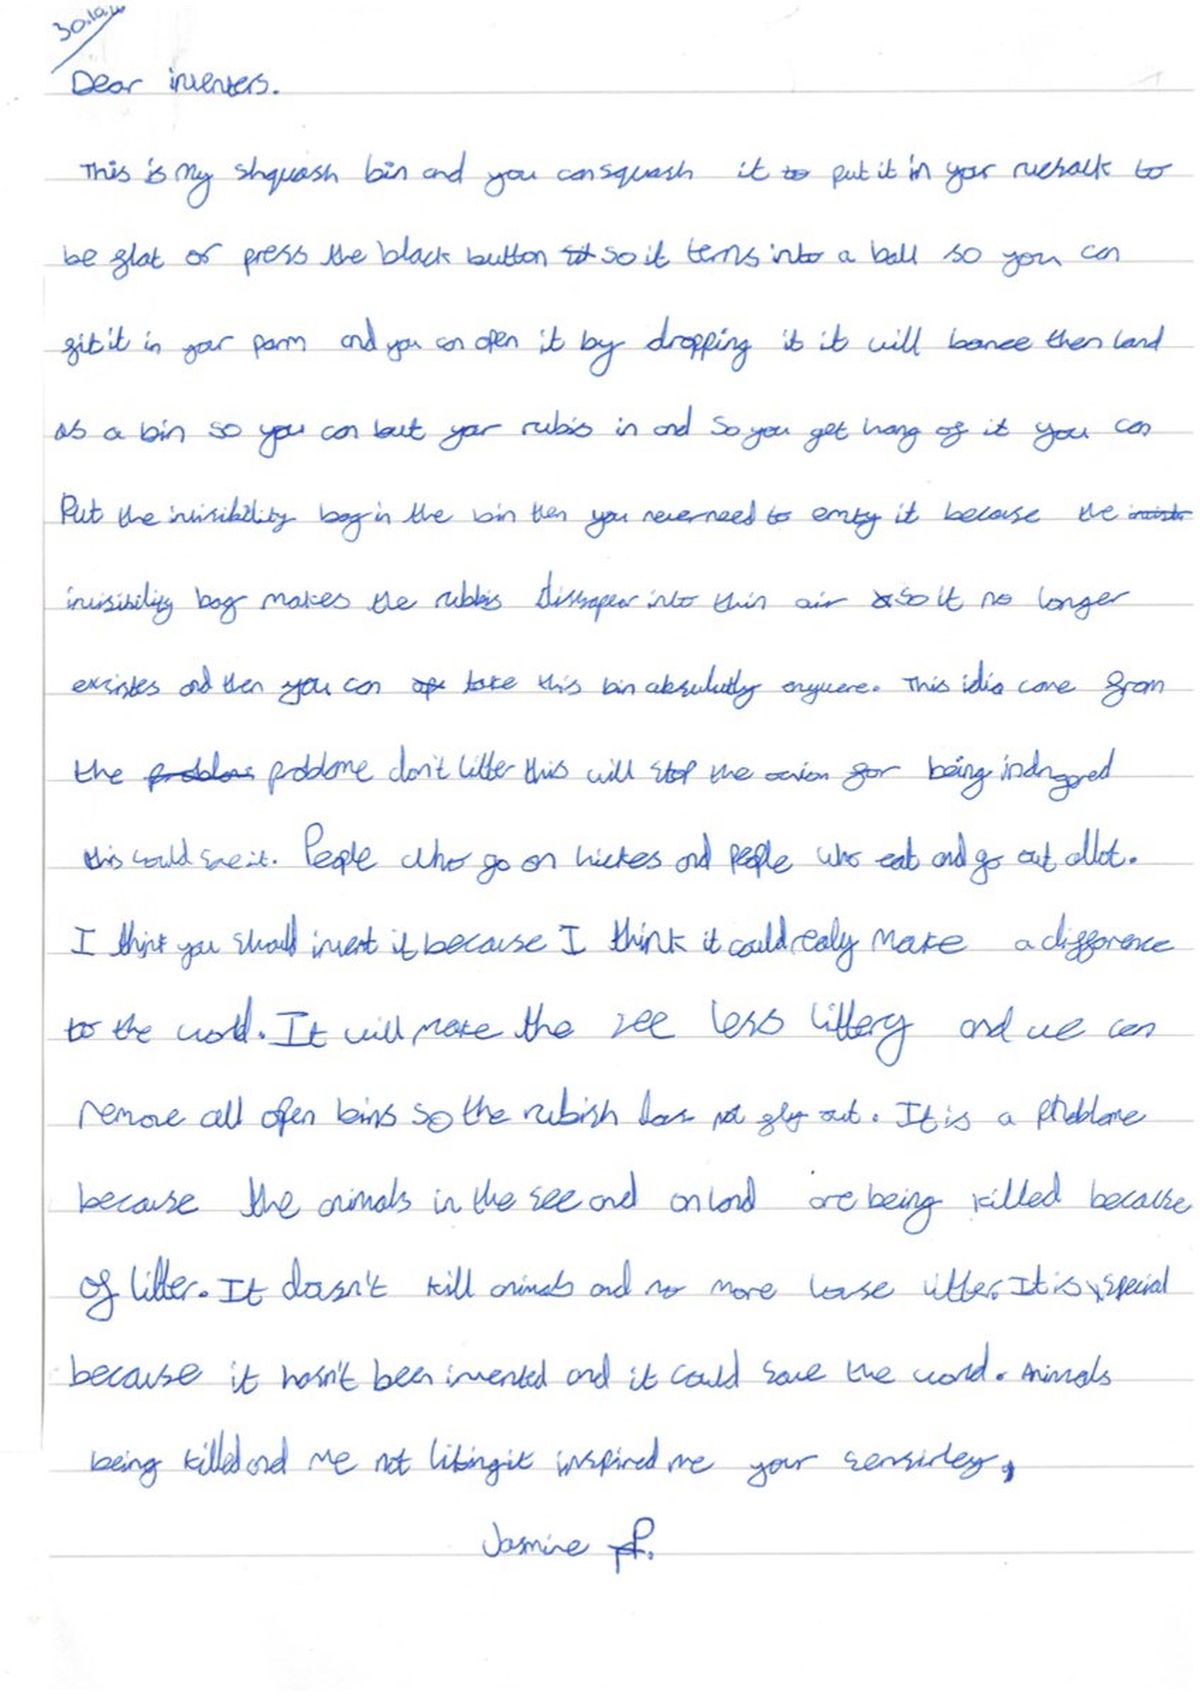 Dear inventers.
This is my shquash bin and you can squash it to put it in your rucksack to
be flat or press the black button so it terns into a ball so you can
fit it in your parm and you can open it by dropping it it will bonce then land
as a bin so you can but your rubis in and so you get hang of it you can
Put the invisibility bag in the bin then you never need to emty it because the
invisibility bag makes the rubbis dissapear into thin air so it no longer
excistes and then you can take this bin absulutly anywere. This idia came from
the problome don't litter this will stop the from being indngered
this could save it. People who go on hickes and people who eat and go out allot.
I think you should invent it because I think it could realy make a difference
to the world. It will make the see less littery and we can
remove all open bins so the rubish does not fly out. It is a problome
because the animals in the see and on land are being killed because
of litter. It doasn't kill animals and no more louse litter. It is special
because it hasn't been invented and it could save the world. Animals
being killed and me not liking it inspired me your sensirley,
Jasmine P.